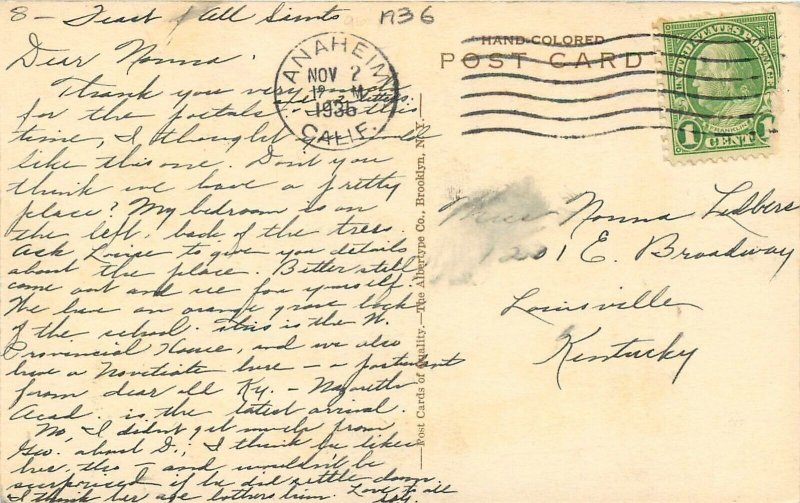 8 - Feast of All Saints
1936
Dear Nonna:
Thank you very much
for the postals & letters. This
time, I thought you would
like this one. Don't you
think we have a pretty
place? My bedroom is on
the left, back of the trees.
Ask Louise to give you details
about the place. Better still
come out and see for yourself.
We have an orange grove back
of the school. This is the W.
Provincial House, and we also
have a Novitiate here - a postulant
from dear old Ky. - Nazareth
Acad. is the latest arrival.
No, I didn't get much from
Geo. about D.; I think he likes
her, tho - and wouldn't be
surprised if he did settle down
I think her age bothers him. Love to all
ANAHEIM
NOV 2
12 M
1936
CALIF.
HAND-COLORED
POST CARD
UNITED STATES POSTAGE
FRANKLIN
1 CENT 1
Post Cards of Quality.—The Albertype Co., Brooklyn, N. Y.
Miss Nonna Ledbers
1201 E. Broadway
Louisville
Kentucky